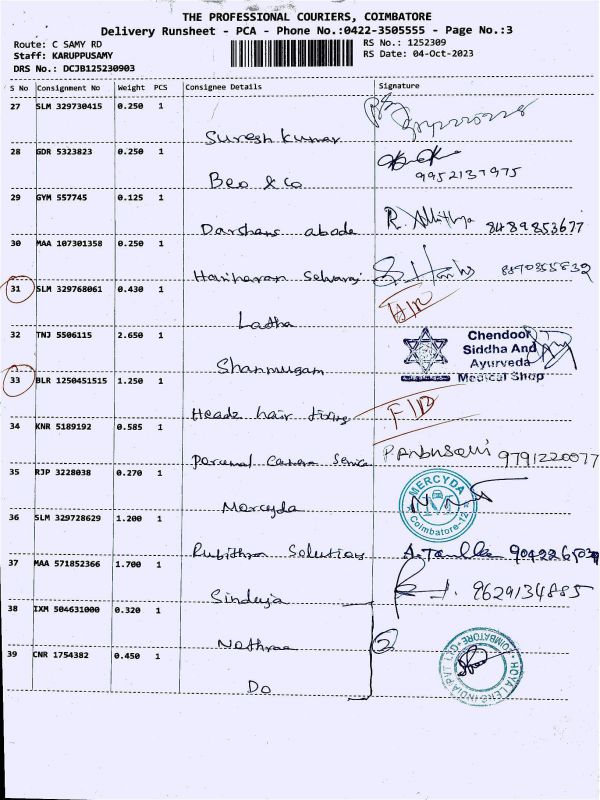 THE PROFESSIONAL COURIERS, COIMBATORE
Delivery Runsheet - PCA - Phone No.:0422-3505555 - Page No.:3
Route: C SAMY RD
RS No.: 1252309
Staff: KARUPPUSAMY
RS Date: 04-Oct-2023
DRS No.: DCJB125230903
S No Consignment No Weight PCS Consignee Details Signature
27 SLM 329730415 0.250 1
Suresh kumar
28 GDR 5323823 0.250 1
Beo & co 9952137975
29 GYM 557745 0.125 1
Darshans abode R. 8489853677
30 MAA 107301358 0.250 1
Hariharan Selvaraj
31 SLM 329768061 0.430 1
Latha
32 TNJ 5506115 2.650 1
Shanmugam
Chendoor
Siddha And
Ayurveda
Medical Shop
33 BLR 1250451515 1.250 1
Headz hair fixing
34 KNR 5189192 0.585 1
9791220077
35 RJP 3228038 0.270 1
Mercyda
MERCYDA
Coimbatore-12
36 SLM 329728629 1.200 1
Rubithra Solutions
37 MAA 571852366 1.700 1
Sinduja 9629134885
38 IXM 504631000 0.320 1
Nethraa 2
39 CNR 1754382 0.450 1
Do
HOYA LENS INDIA PVT LTD
COIMBATORE